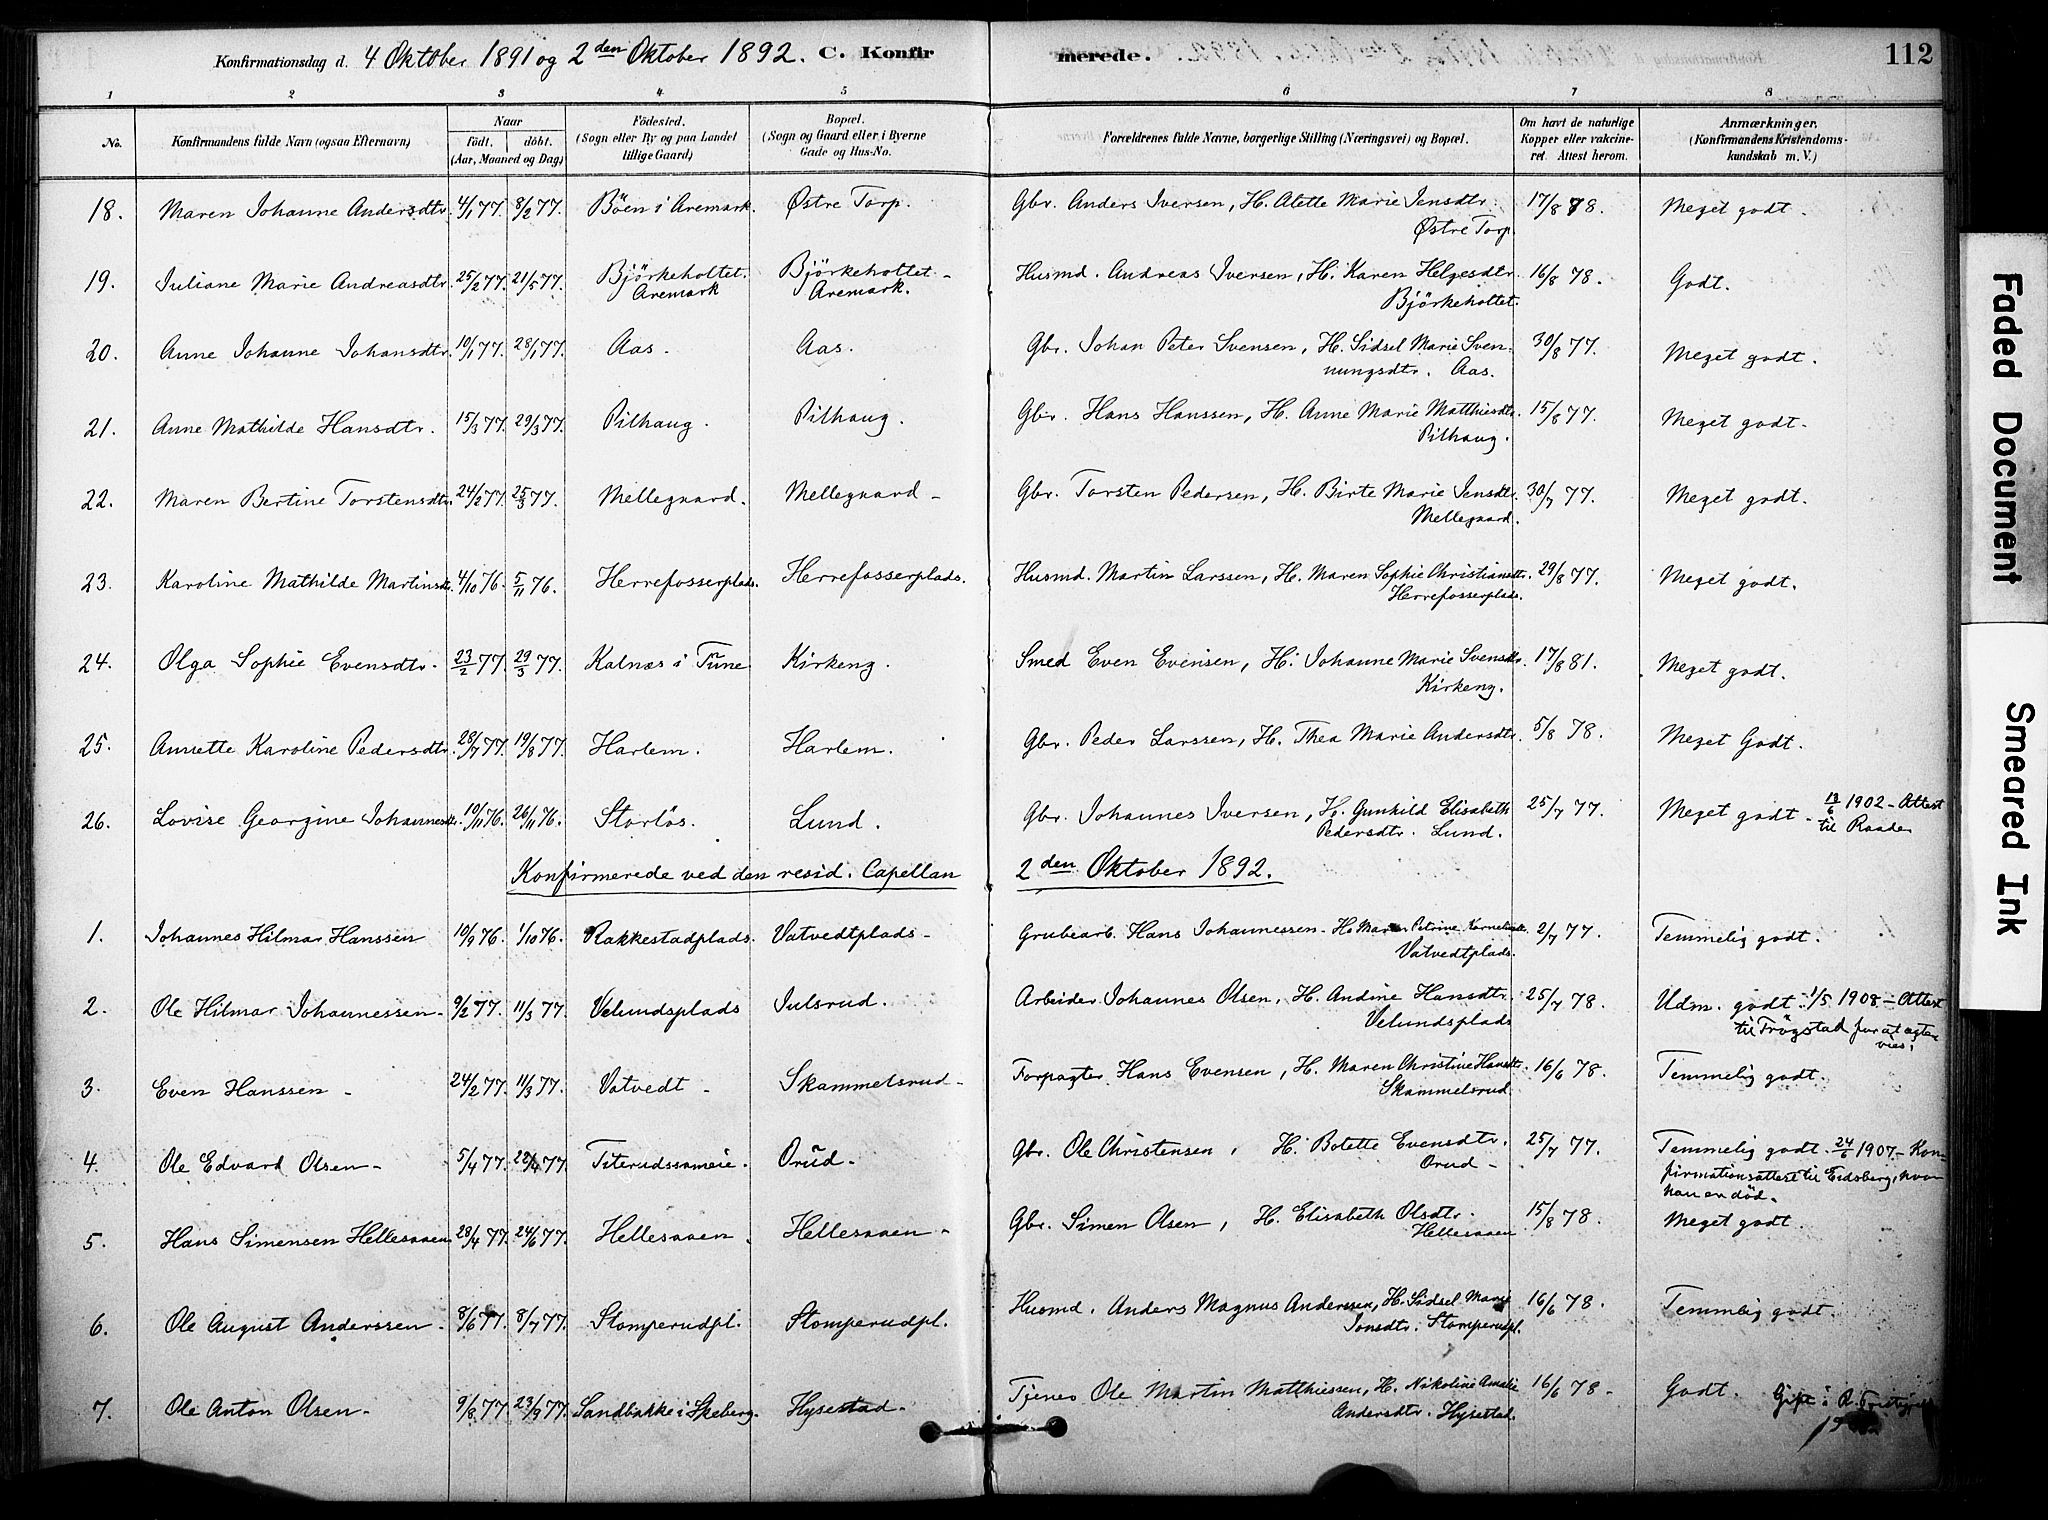 Konfirmationsdag d. 4 Oktober 1891 og 2den Oktober 1892. C. Konfirmerede. 112
1 2 3 4 5 6 7 8
No. Konfirmandens fulde Navn (ogsaa Efternavn) Naar födt. döbt. (Aar, Maaned og Dag) Födested. (Sogn eller By og paa Landet tillige Gaard) Bopæl. (Sogn og Gaard eller i Byerne Gade og Hus-No. Forældrenes fulde Navne, borgerlige Stilling (Næringsvei) og Bopæl. Om havt de naturlige Kopper eller vakcineret. Attest herom. Anmærkninger. (Konfirmandens Kristendomskundskab m. V.)
18. Maren Johanne Andersdtr. 4/1 77. 8/2 77. Böen i Aremark. Østre Torp. Gbr. Anders Iversen, H. Alette Marie Jensdtr. 17/8 78. Meget godt.
Østre Torp.
19. Juliane Marie Andreasdtr. 25/2 77. 21/5 77. Björkeholtet. Björkeholtet - Husmd. Andreas Iversen, H. Karen Helgesdtr. 16/8 78. Godt.
Aremark Aremark. Björkeholtet.
20. Anne Johanne Johansdtr. 10/1 77. 28/1 77. Aas. Aas. Gbr. Johan Peter Svensen, H. Sidsel Marie Sven- 30/8 77. Meget godt.
nungsdtr. Aas.
21. Anne Mathilde Hansdtr. 15/3 77. 29/3 77. Pilhaug. Pilhaug. Gbr. Hans Hanssen, H. Anne Marie Matthisdtr. 15/8 77. Meget godt.
Pilhaug.
22. Maren Bertine Torstensdtr. 24/2 77. 25/3 77. Mellegaard. Mellegaard - Gbr. Torsten Pedersen, H. Birte Marie Jensdtr. 30/7 77. Meget godt.
Mellegaard.
23. Karoline Mathilde Martinsdtr. 4/10 76. 5/11 76. Herrefosserplads. Herrefosserplads. Husmd. Martin Larssen, H. Maren Sophie Christiansdtr. 29/8 77. Meget godt.
Herrefosserplads.
24. Olga Sophie Evensdtr. 23/2 77. 29/3 77. Kalnæs i Tune Kirkeng. Smed Even Evensen, H. Johanne Marie Svensdtr. 17/8 81. Meget godt.
Kirkeng.
25. Annette Karoline Pedersdtr. 28/7 77. 19/8 77. Harlem. Harlem. Gbr. Peder Larssen, H. Thea Marie Andersdtr. 5/8 78. Meget Godt.
26. Lovise Georgine Johannesdtr. 10/11 76. 26/11 76. Storlös. Lund. Gbr. Johannes Iversen, H. Gunhild Elisabeth 25/7 77. Meget godt - 13/6 1902 - Attest
Pedersdtr. Lund. til Raade
Konfirmerede ved den resid. Capellan 2den Oktober 1892.
1. Johannes Hilmar Hanssen 10/9 76. 1/10 76. Rakkestadplads. Vatvedtplads - Grubearb. Hans Johannessen - H. Maren Petrine Korneliusdtr. 2/7 77. Temmelig godt.
Vatvedtplads.
2. Ole Hilmar Johannessen - 9/2 77. 11/3 77. Velundsplads Julsrud. Arbeider Johannes Olsen, H. Andine Hansdtr. 25/7 78. Udm. godt. 1/5 1908 - Attest
Velundsplads til Trögstad for at ægte-
vies.
3. Even Hanssen - 24/2 77. 11/3 77. Vatvedt - Skammelsrud - Forpagter Hans Evensen, H. Maren Christine Hansdtr. 16/6 78. Temmelig godt.
Skammelsrud.
4. Ole Edvard Olsen - 5/4 77. 22/4 77. Titerudssameie. Orud - Gbr. Ole Christensen, H. Botette Evensdtr. 25/7 77. Temmelig godt. 24/6 1907 - Kon-
Orud - firmationsattest til Eidsberg, hvor
han er död.
5. Hans Simensen Hellesaaen 28/4 77. 24/6 77. Hellesaaen. Hellesaaen - Gbr. Simen Olsen, H. Elisabeth Olsdtr. 15/8 78. Meget godt.
Hellesaaen
6. Ole August Anderssen - 8/6 77. 8/7 77. Stomperudpl. Stomperudpl. Husmd. Anders Magnus Anderssen, H. Sidsel Marie 16/6 78. Temmelig godt.
Jonsdtr. Stomperudpl.
7. Ole Anton Olsen - 9/8 77. 23/9 77. Sandbakke i Skeberg. Hysestad. Tjener Ole Martin Matthiessen, H. Nikoline Amalie 16/6 78 - Godt. Gift i
Andersdtr. Hysestad.
Faded Document
Smeared Ink